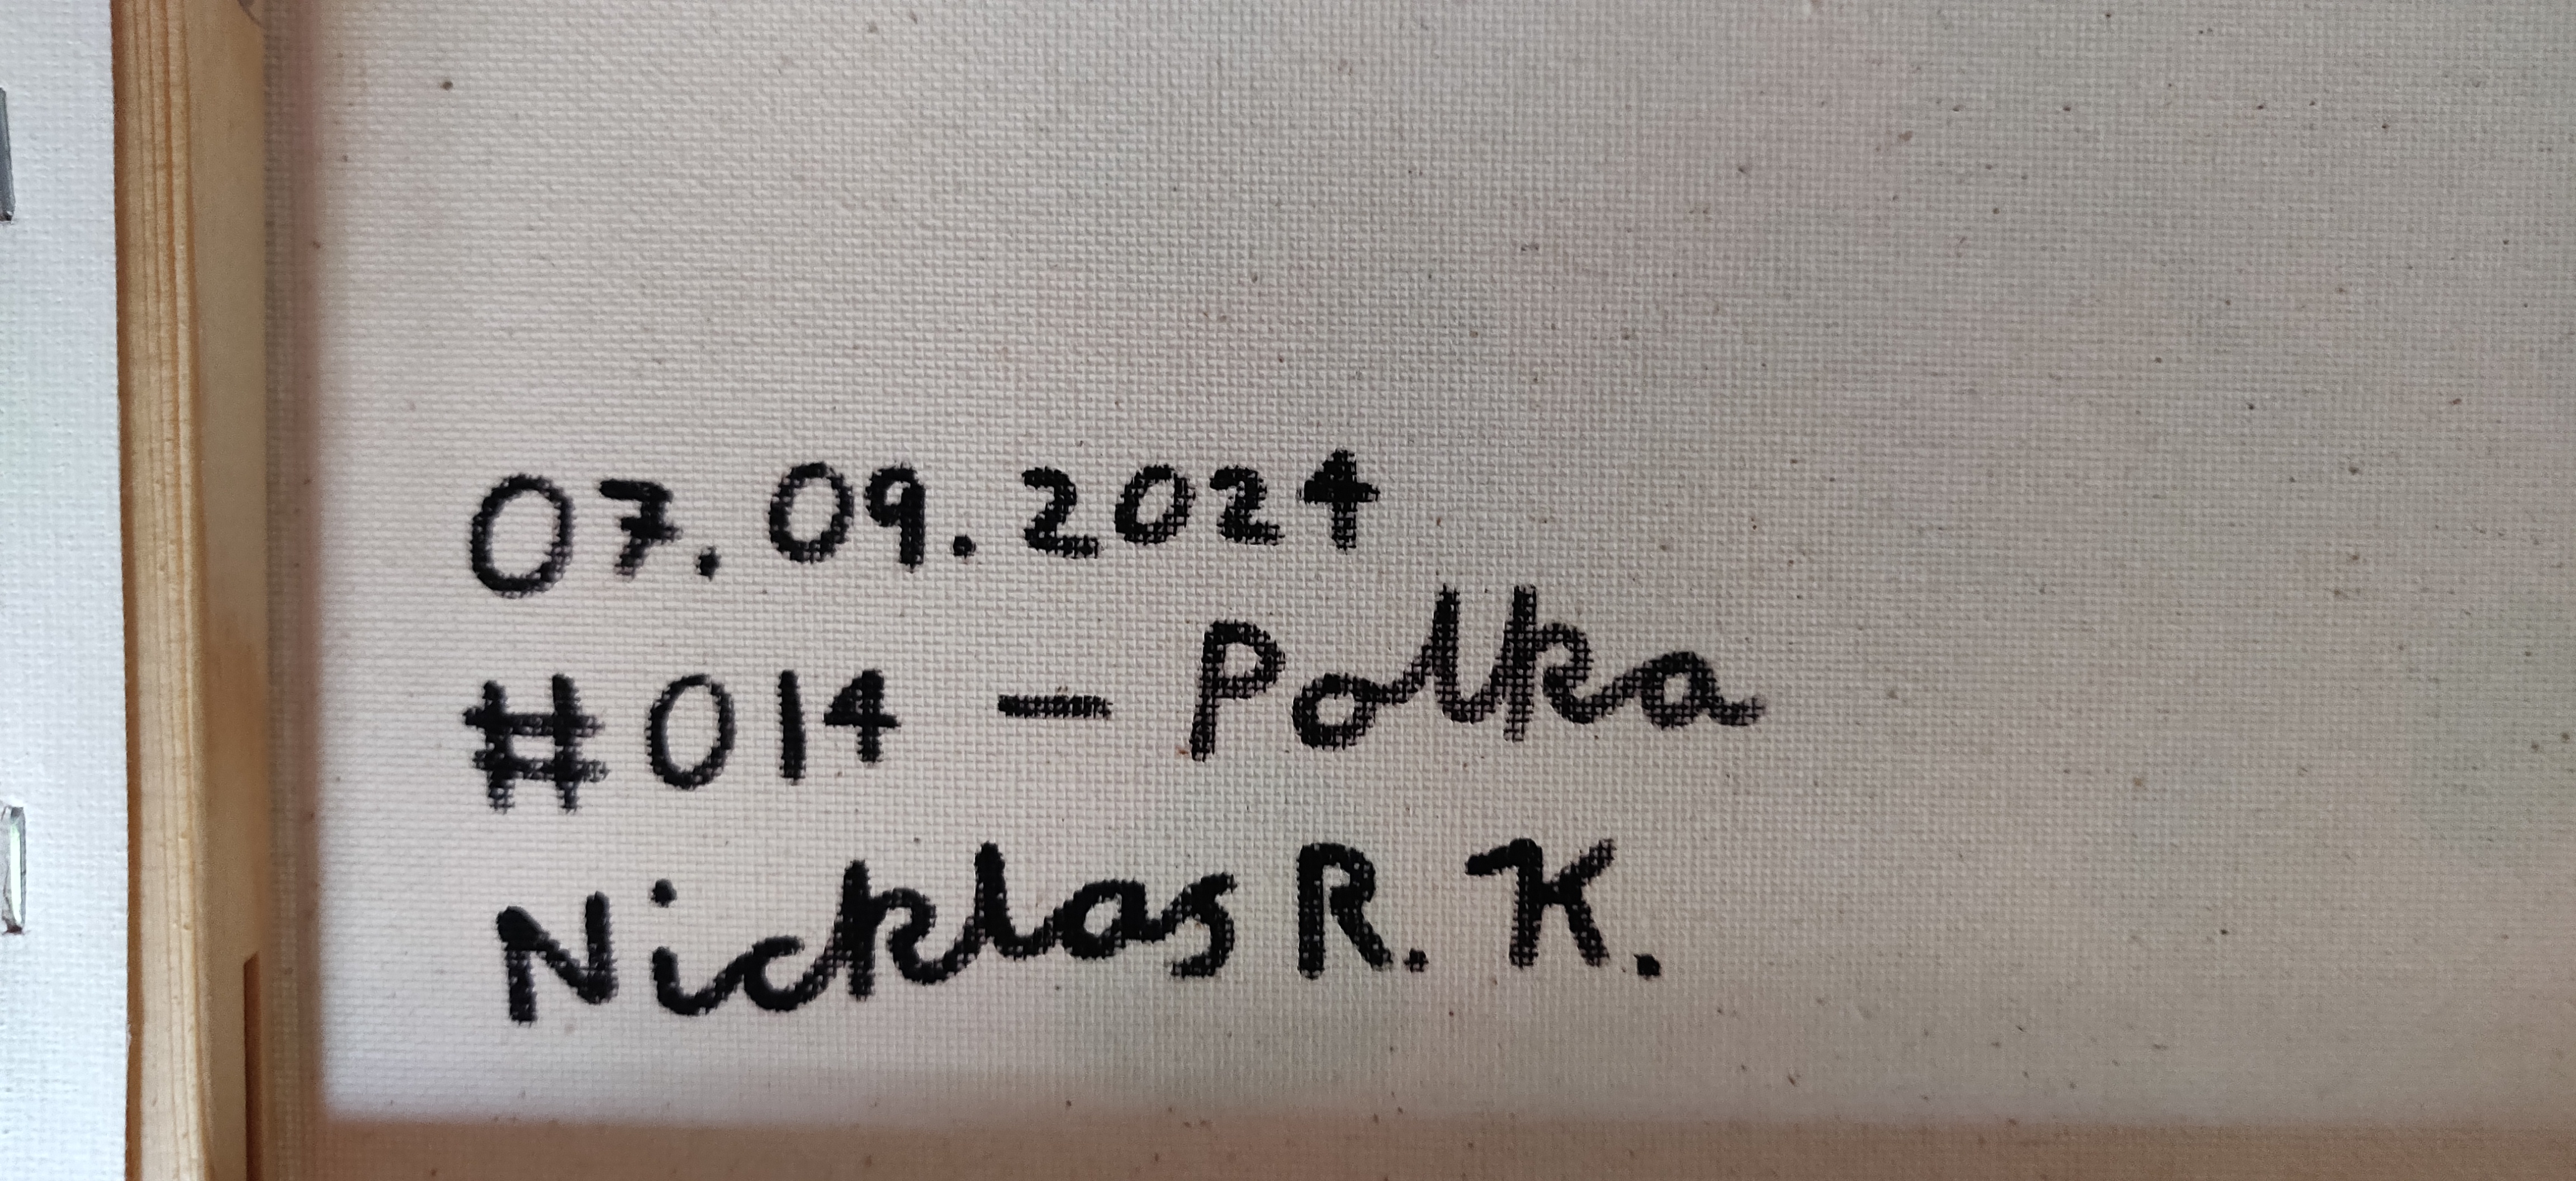 07.09.2024
#014 - Polka
Nicklas R. K.